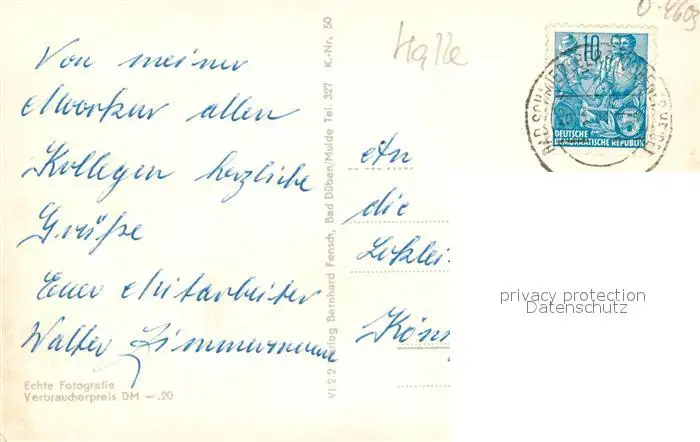 Von meiner
allen
Kollegen herzliche
Grüße
Euer Mitarbeiter
Walter Zimmermann
Echte Fotografie
Verbraucherpreis DM —.20
VI 2 2 Verlag Bernhard Fensch, Bad Düben/Mulde Tel. 327 K.-Nr. 50
Halle
10
DEUTSCHE
DEMOKRATISCHE REPUBLIK
An
die
privacy protection
Datenschutz